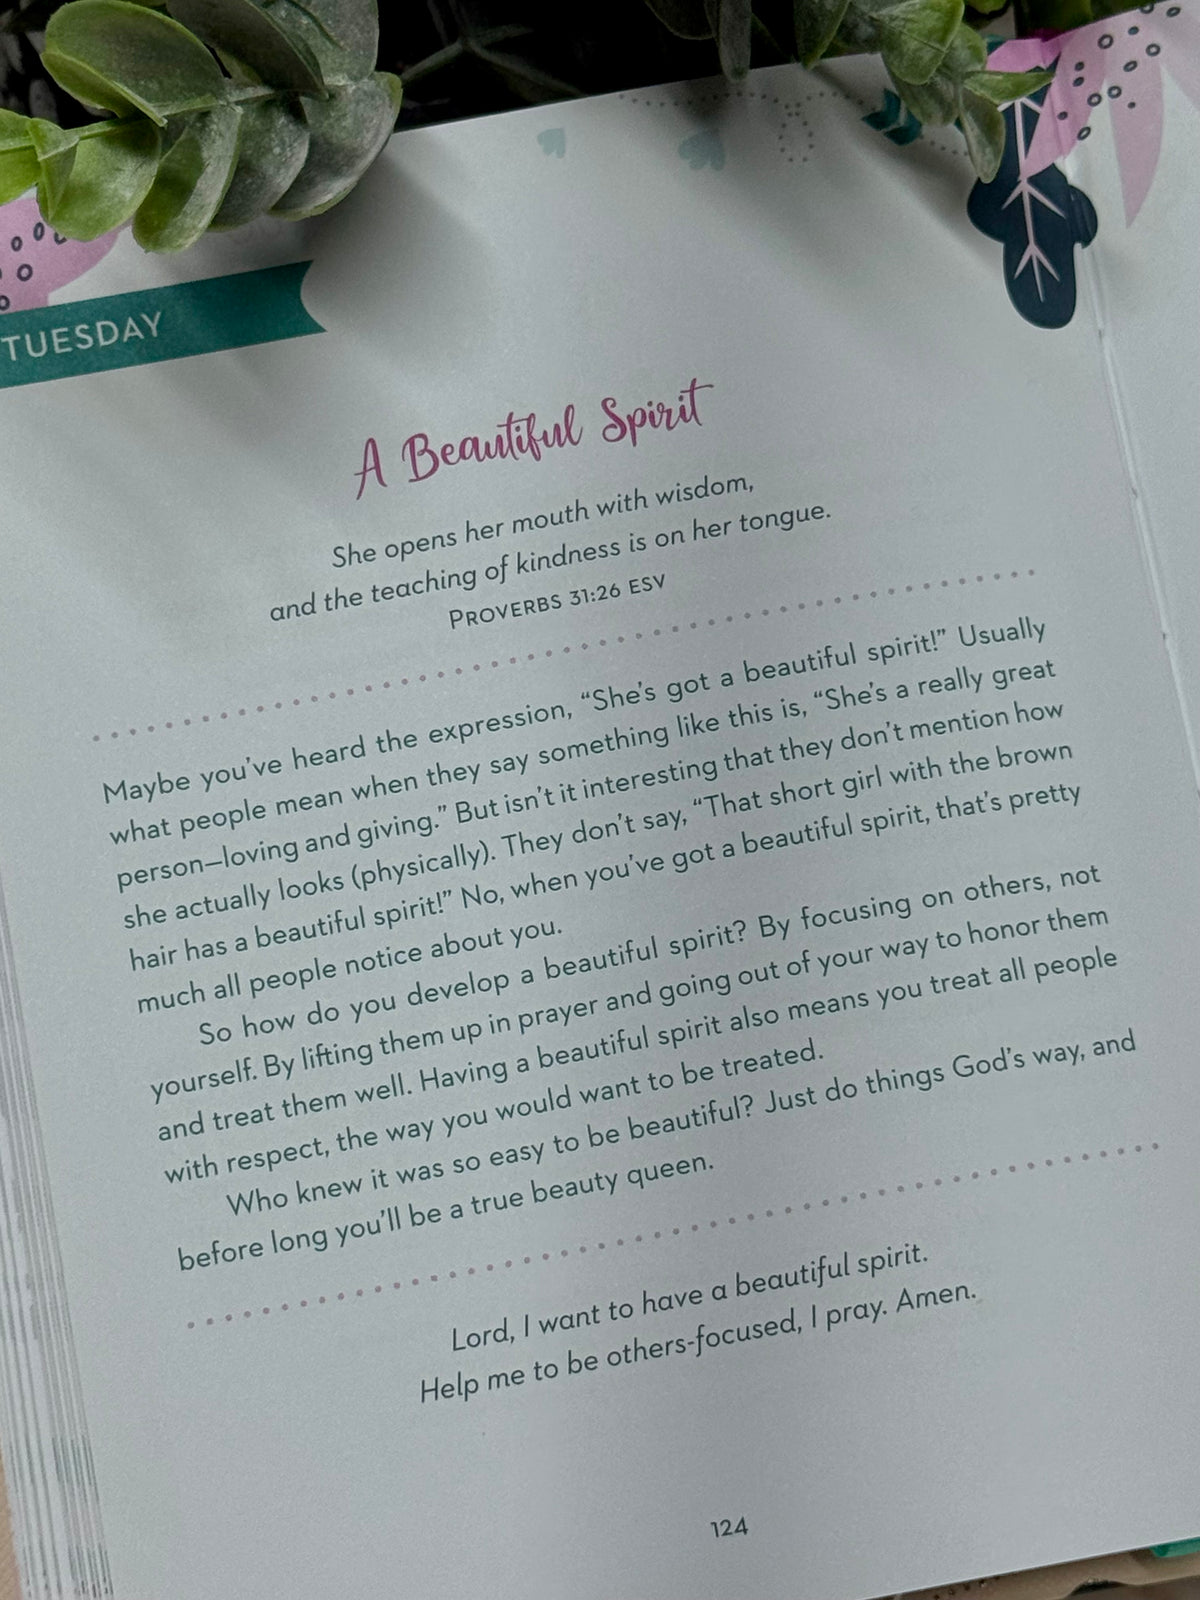 TUESDAY
A Beautiful Spirit
She opens her mouth with wisdom,
and the teaching of kindness is on her tongue.
PROVERBS 31:26 ESV
Maybe you've heard the expression, “She's got a beautiful spirit!” Usually
what people mean when they say something like this is, “She's a really great
person—loving and giving.” But isn't it interesting that they don't mention how
she actually looks (physically). They don't say, “That short girl with the brown
hair has a beautiful spirit!” No, when you've got a beautiful spirit, that's pretty
much all people notice about you.
So how do you develop a beautiful spirit? By focusing on others, not
yourself. By lifting them up in prayer and going out of your way to honor them
and treat them well. Having a beautiful spirit also means you treat all people
with respect, the way you would want to be treated.
Who knew it was so easy to be beautiful? Just do things God's way, and
before long you'll be a true beauty queen.
Lord, I want to have a beautiful spirit.
Help me to be others-focused, I pray. Amen.
124